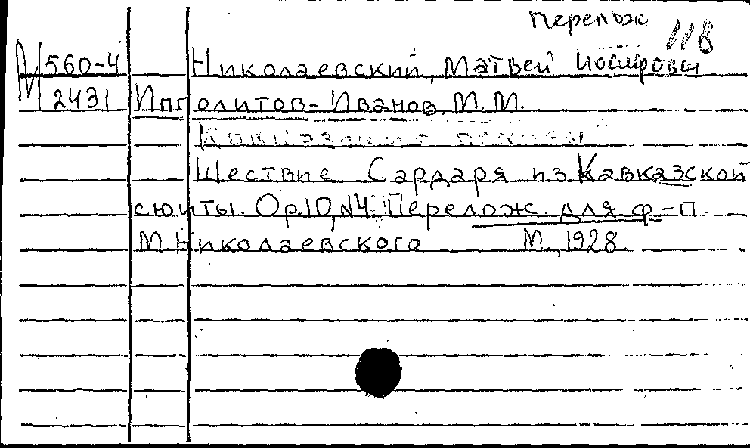 перелож
118
М 560-4 Николаевский, Матвей Иосифович
2431 Ипполитов-Иванов, М.М.
Шествие Сардаря из Кавказской
сюиты. Op.10, №4. Перелож. для ф-п.
М. Николаевского М., 1928.